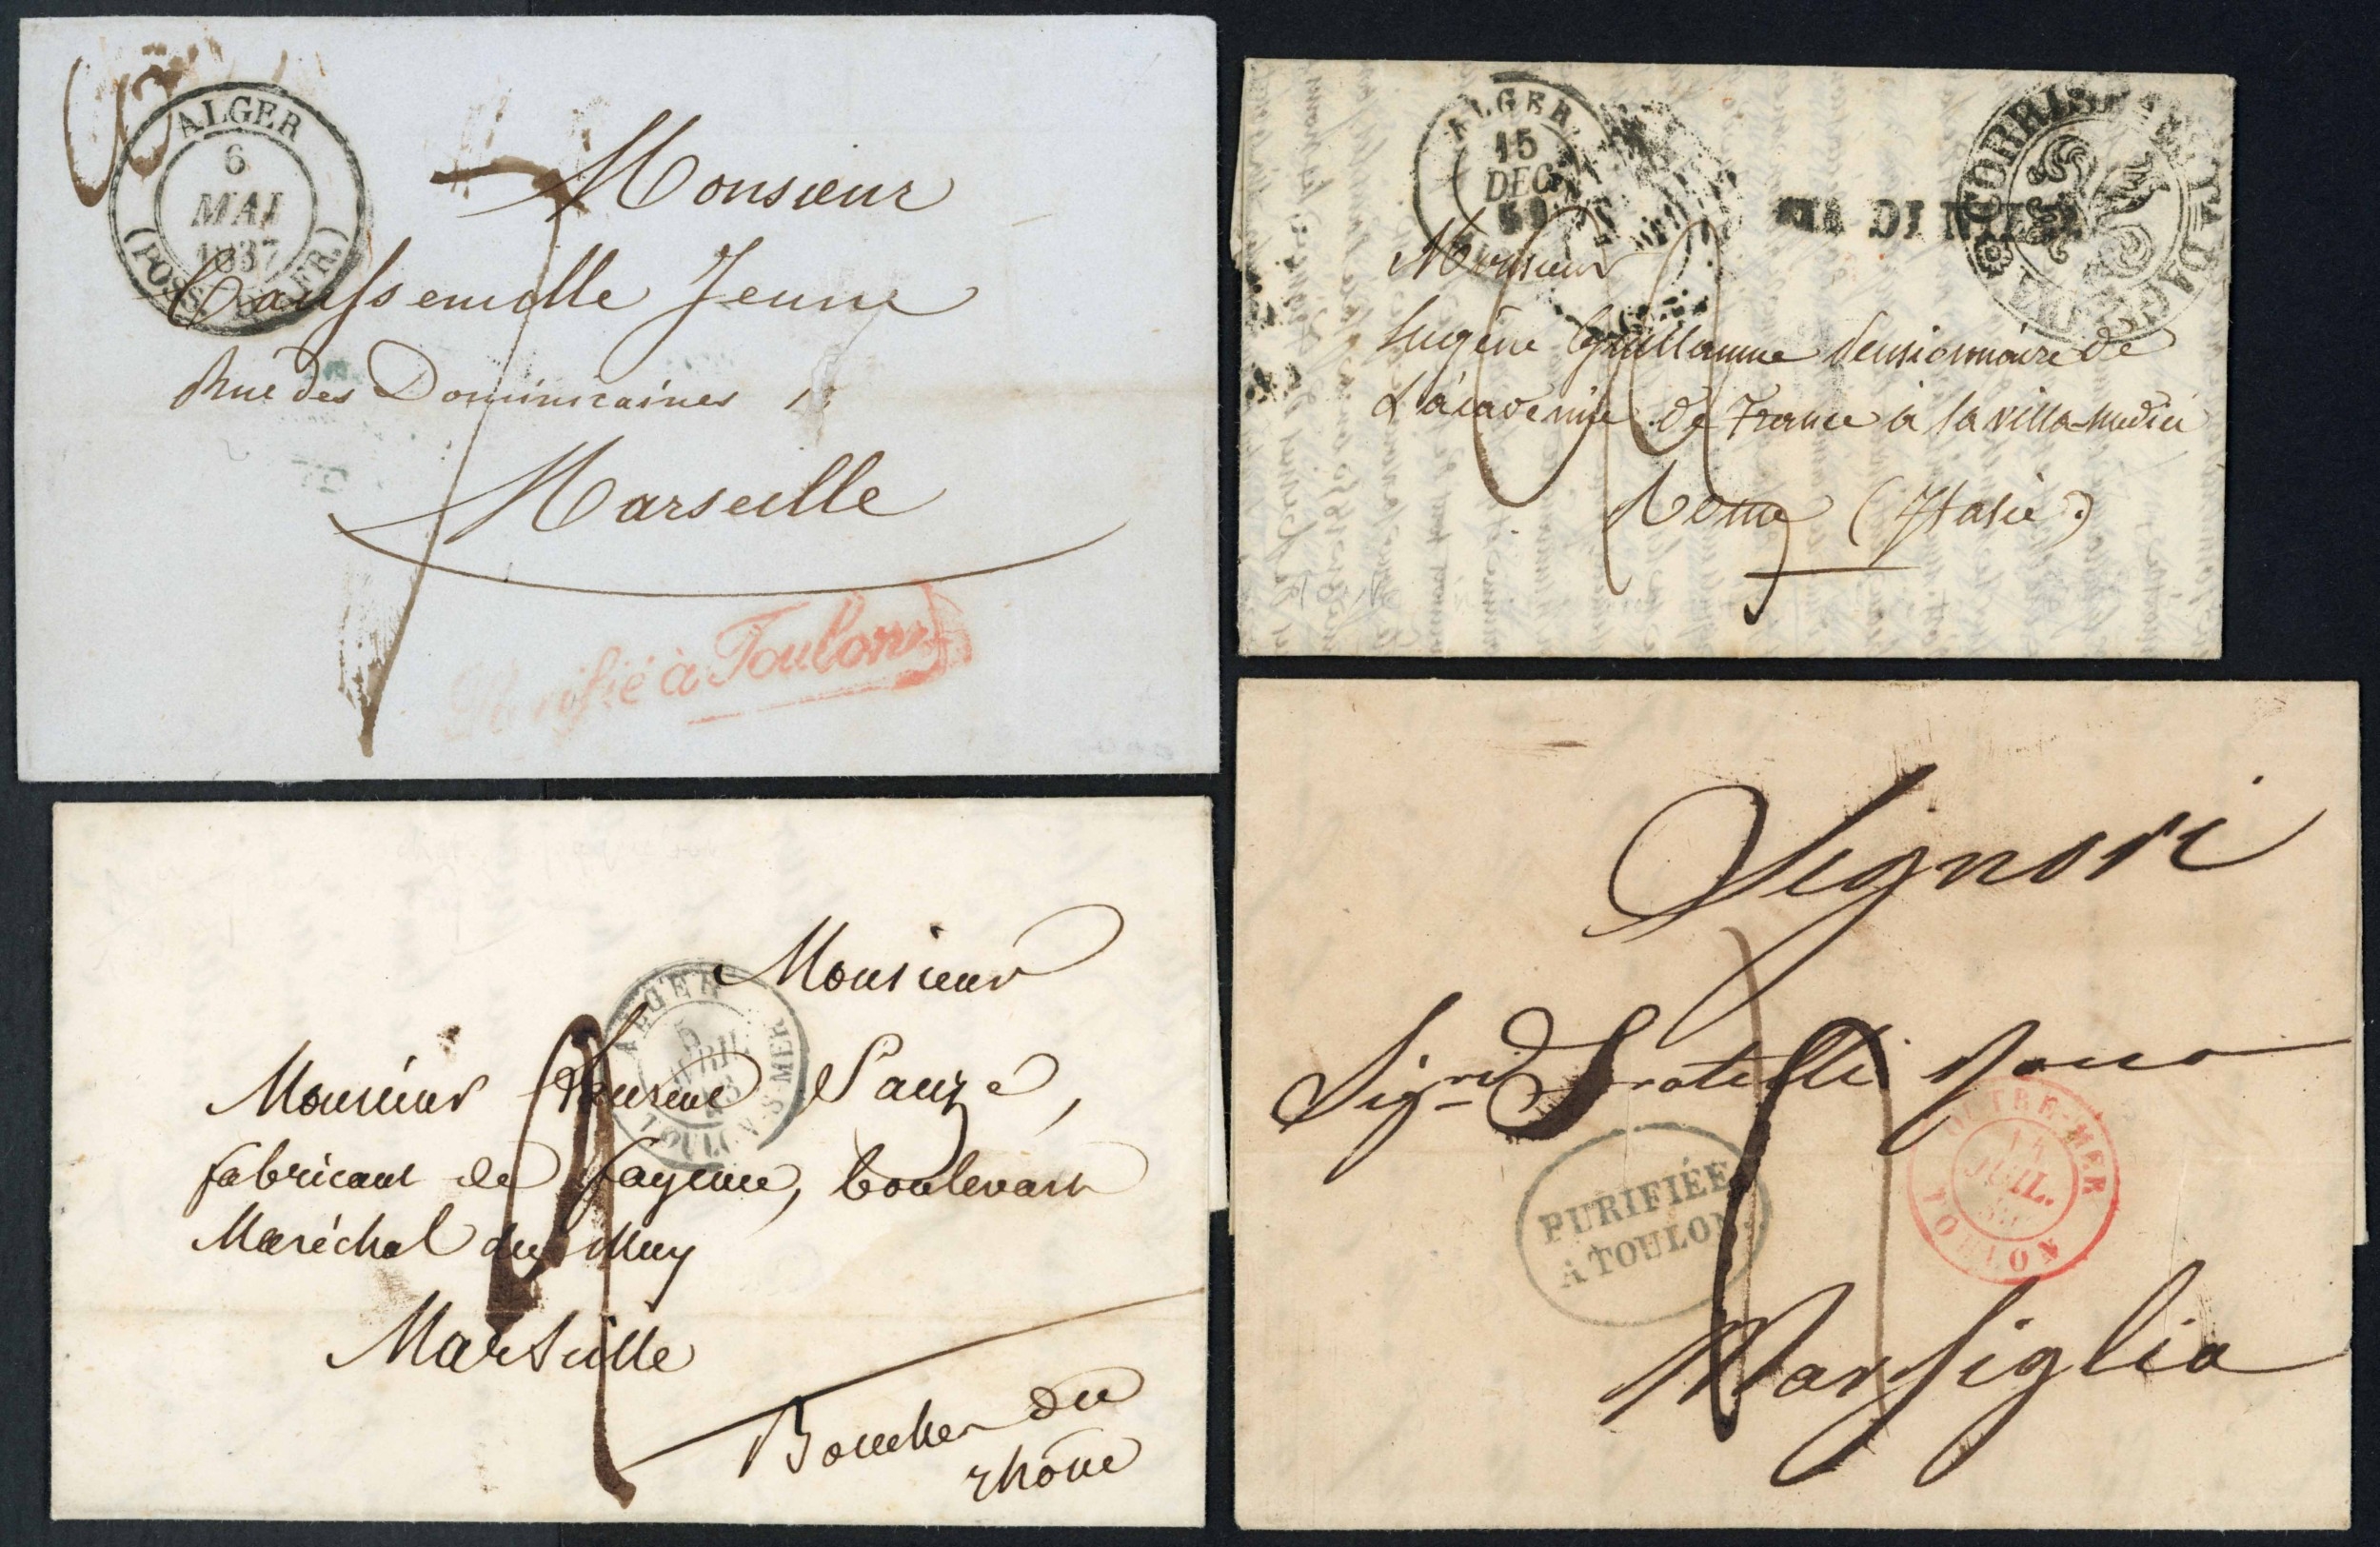 ALGER
6
MAI
1837
(POSS. FR.)
Monsieur
Caussemille Jeune
Rue des Dominicaines
Marseille
Purifié à Toulon
ALGER
15
DEC
50
VIA DI NIZZA
CORRISP
Monsieur
Eugène Guillaume Pensionnaire de
L'académie de France à la villa-Medici
Rome (Italie.)
Monsieur
ALGER
5
AVRIL
TOULON-S-MER
Monsieur Sauze,
fabricant de fayence, boulevart
Maréchal du Muy
Marseille
Bouches du
rhône
Signori
Sigri Fratelli
OUTRE-MER
14
JUIL.
TOULON
PURIFIÉE
A TOULON.
Marsiglia